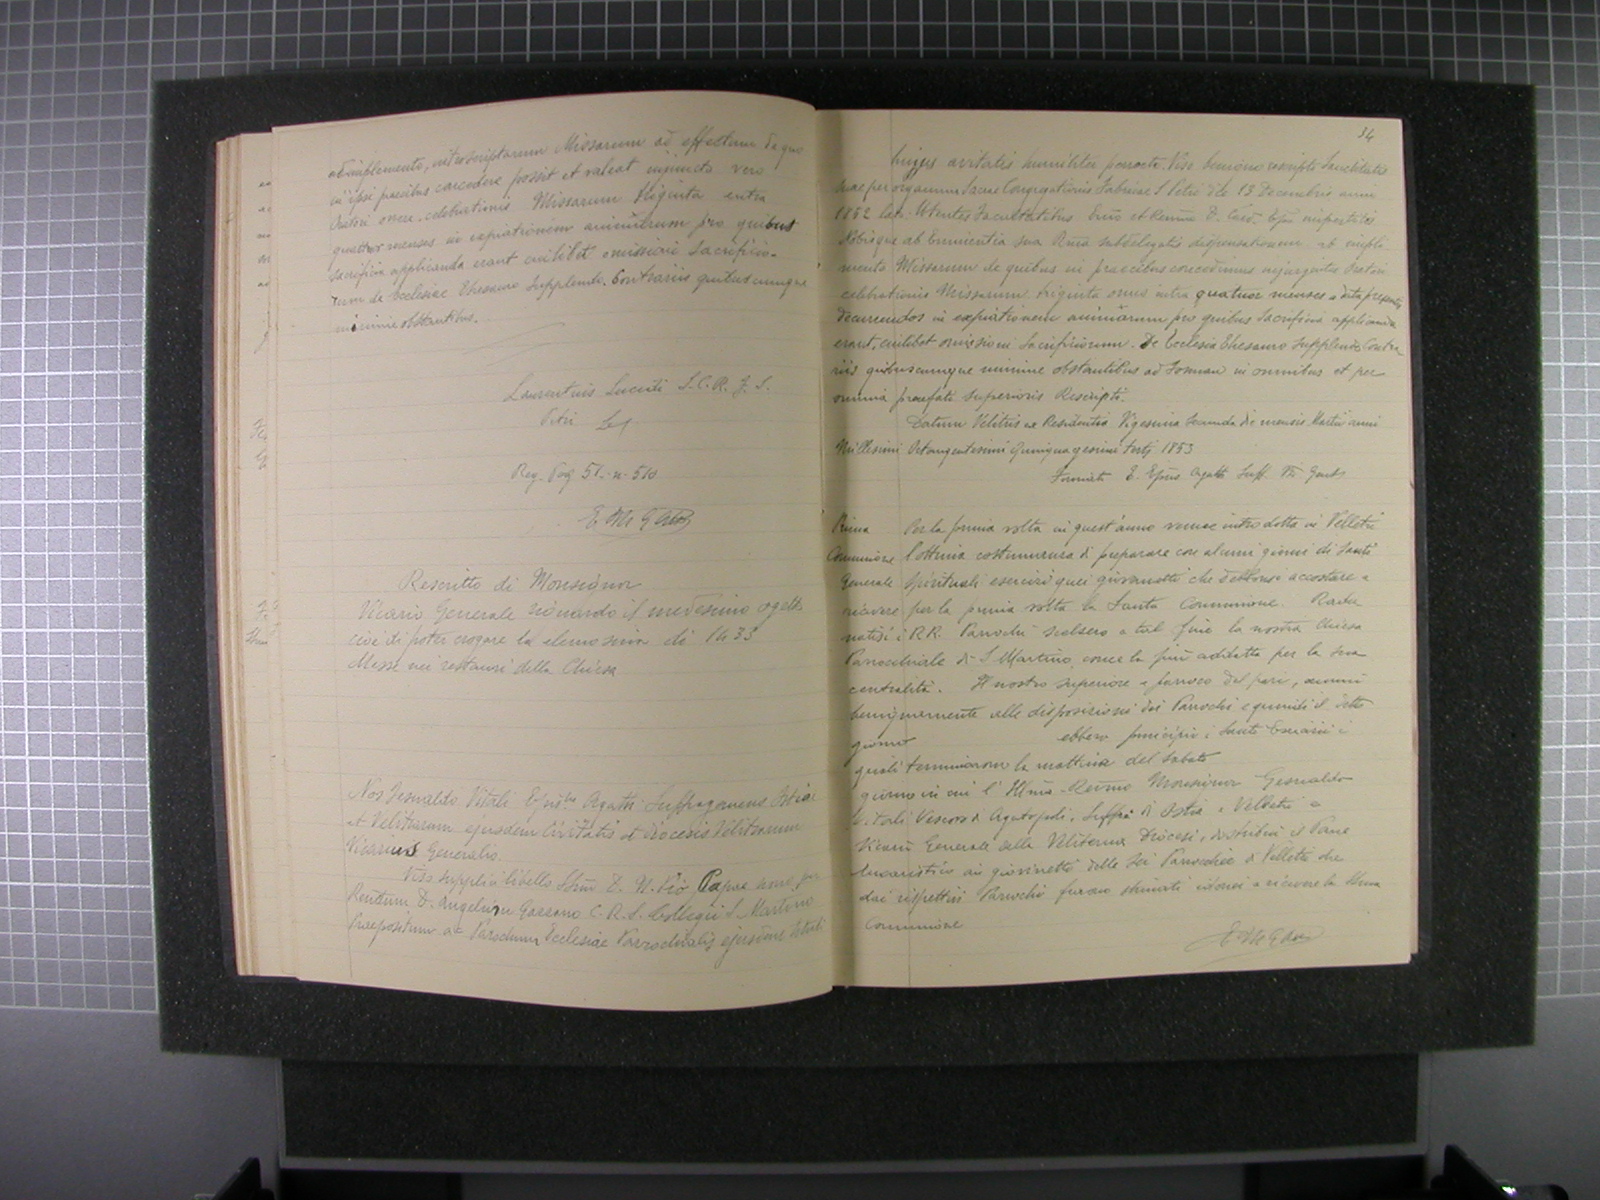 adimplemento, introscriptarum Missarum ad effectum de quo
in ipsi precibus concedere possit et valeat injuncto vero
Oratori onere celebrationis Missarum triginta intra
quattuor menses in expiationem animarum pro quibus
sacrificia applicanda erant cuilibet omissioni Sacrificio-
rum de Ecclesiae Thesauro Supplendo. Contrariis quibuscumque
minime obstantibus.
Laurentius S. C. R. F. S.
Petri
Reg. Pag 51. n. 510
Rescritto di Monsignor
Vicario Generale riguardo il medesimo oggetto
cioè di poter erogare la elemosina di 1433
Messe nei restauri della Chiesa
Nos Gesualdo Vitali Episcus Agath. Suffraganeus Ostiae
et Veliternum ejusdem Civitatis et Diocesis Veliternum
Vicarius Generalis.
Viso supplici libello SSmo D. N. Pio Papae nono per
Rendum D. Angelum Gazzano C. R. S. Collegii S. Martino
Praepositum ac Parochum Ecclesiae Parrochialis ejusdem
34
hujus civitatis humiliter porrecto. Viso benigno rescripto Sanctitatis
Suae per organum Sacrae Congregationis Fabricae S. Petri die 13 Decembris anni
1852 lato. Utentes Facultatibus Emo et Revmo D. Card. Epo impertitis
Nobisque ab Eminentia sua Rma subdelegatis dispensationem ab impli
mento Missarum de quibus in praecibus concedimus injungentes Oratori
celebrationis Missarum triginta onus intra quatuor menses a data presenti
decurrendos in expiationem animarum pro quibus Sacrificia applicanda
erant, cuilibet omissioni Sacrificiorum. De Ecclesia Thesauro Supplendo Contra
riis quibuscumque minime obstantibus ad formam in omnibus et per
omnia praefati superioris Rescripti.
Datum Velitris ex Residentia Vigesima secunda die mensis Martii anni
Millesimi Octingentesimi Quinquagesimi tertj 1853
Firmato G. Epus Agath Suff. Vic Genlis
Prima Per la prima volta in quest'anno venne introdotta in Velletri
Comunione l'ottima costumanza di preparare con alcuni giorni di Santi
Generale Spirituali esercizi quei giovanetti che debbono accostarsi a
ricevere per la prima volta la Santa Comunione. Radu
natisi i RR. Parrochi scelsero a tal fine la nostra Chiesa
Parrocchiale di S. Martino, come la più adattata per la sua
centralità. Il nostro Superiore e parroco del pari, annuì
benignamente alle disposizioni dei Parrochi e quindi il detto
giorno ebbero principio i Santi Esercizi i
quali terminarono la mattina del sabato
giorno in cui l'Illmo Revmo Monsignor Gesualdo
Vitali Vescovo d'Agatopoli, Suffro di Ostia e Velletri e
Vicario Generale della Veliterna Diocesi, distribuì il Pane
Eucaristico ai giovinetti delle sei Parrochie di Velletri che
dai rispettivi Parrochi furono stimati idonei a ricevere la Stma
Comunione